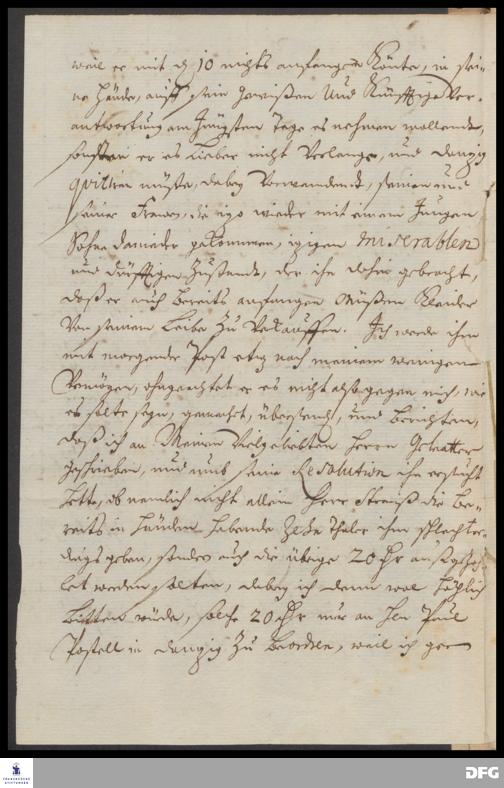 weil er mit d. 10 nichts anfangen könte, in sei-
ne Hände, auff sein gewißen und künfftige Ver-
antwortung am Jüngsten Tage es nehmen wollend,
sonsten er es lieber nicht verlange, und Danzig
quitiren müste, dabey vorwendend, seinen und
seiner Frauen, die izo wieder mit einem Jungen
Sohne darnieder gekommen, izigen miserablen
und dürfftigen Zustandt, der ihn dahin gebracht,
daß er auch bereits anfangen müßen Kleider
von seinem Leibe zu verkauffen. Ich werde ihm
mit morgender Post etwz nach meinem wenigen
Vermögen, ohngeachtet er es nicht also gegen mich, wie
es solte seyn, gemacht, übersend, und berichten,
daß ich an Meinen Vielgeliebten Herrn Gevatter
geschrieben, und umb seine Resolution ihn ersucht
hette, ob nemlich nicht allein Herr Strauß die be-
reits in Händen habende Zehn Thaler ihm schlechter-
dings geben, sondern auch die übrige 20 Thr ausgezah-
let werden solten, dabey ich denn wol höflich
bitten würde, solche 20 Thr nur an Hen Paul
Postell in Danzig zu beordren, weil ich gern
FRANCKESCHE
STIFTUNGEN
DFG